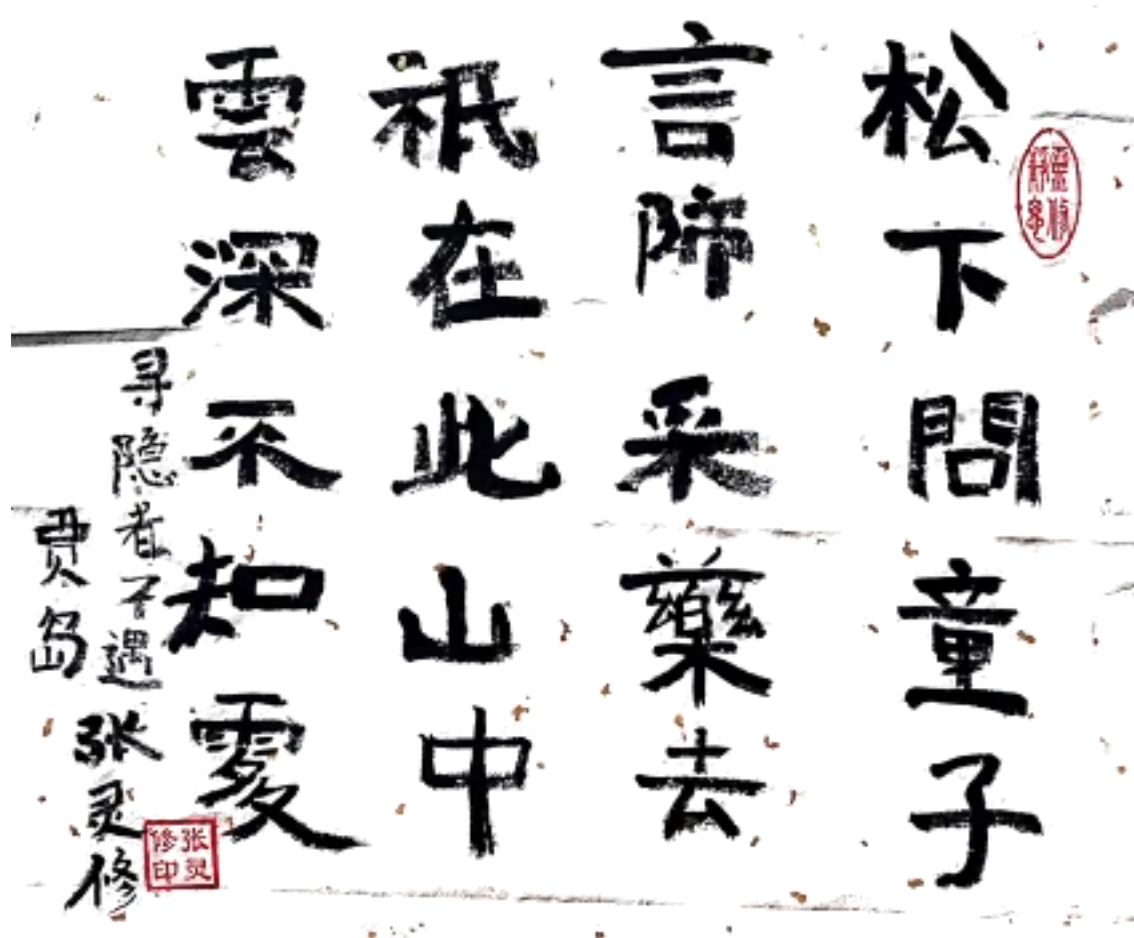 松下問童子
言師采藥去
祇在此山中
雲深不知處
寻隐者不遇
贾岛
张灵修
张灵修印